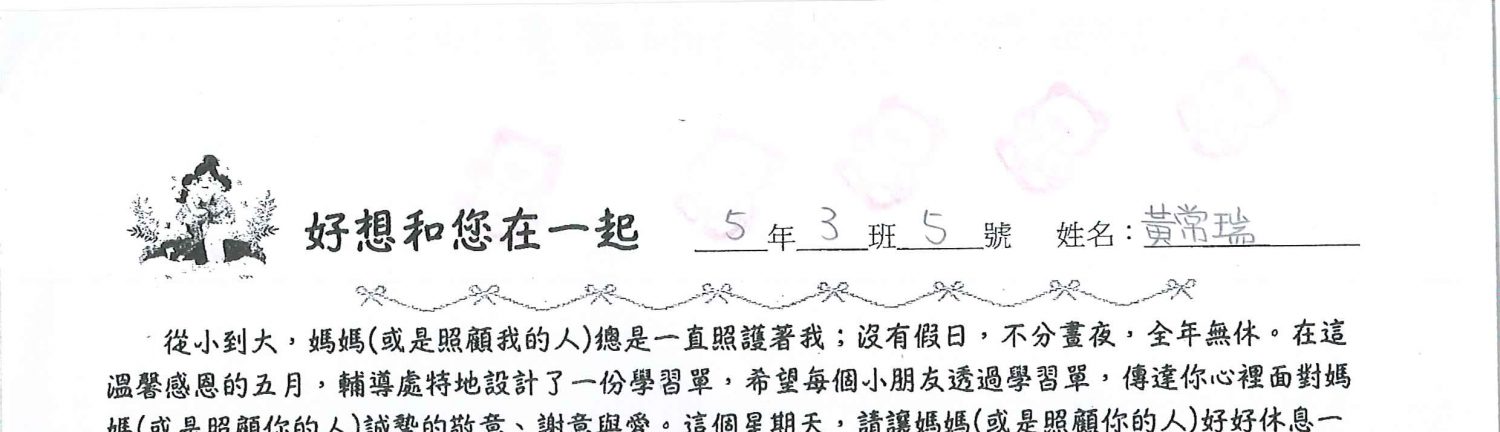 好想和您在一起 5年3班5號 姓名：黃常瑞
從小到大，媽媽(或是照顧我的人)總是一直照護著我；沒有假日，不分晝夜，全年無休。在這
溫馨感恩的五月，輔導處特地設計了一份學習單，希望每個小朋友透過學習單，傳達你心裡面對媽
媽(或是照顧你的人)誠摯的敬意、謝意與愛。這個星期天，請讓媽媽(或是照顧你的人)好好休息一